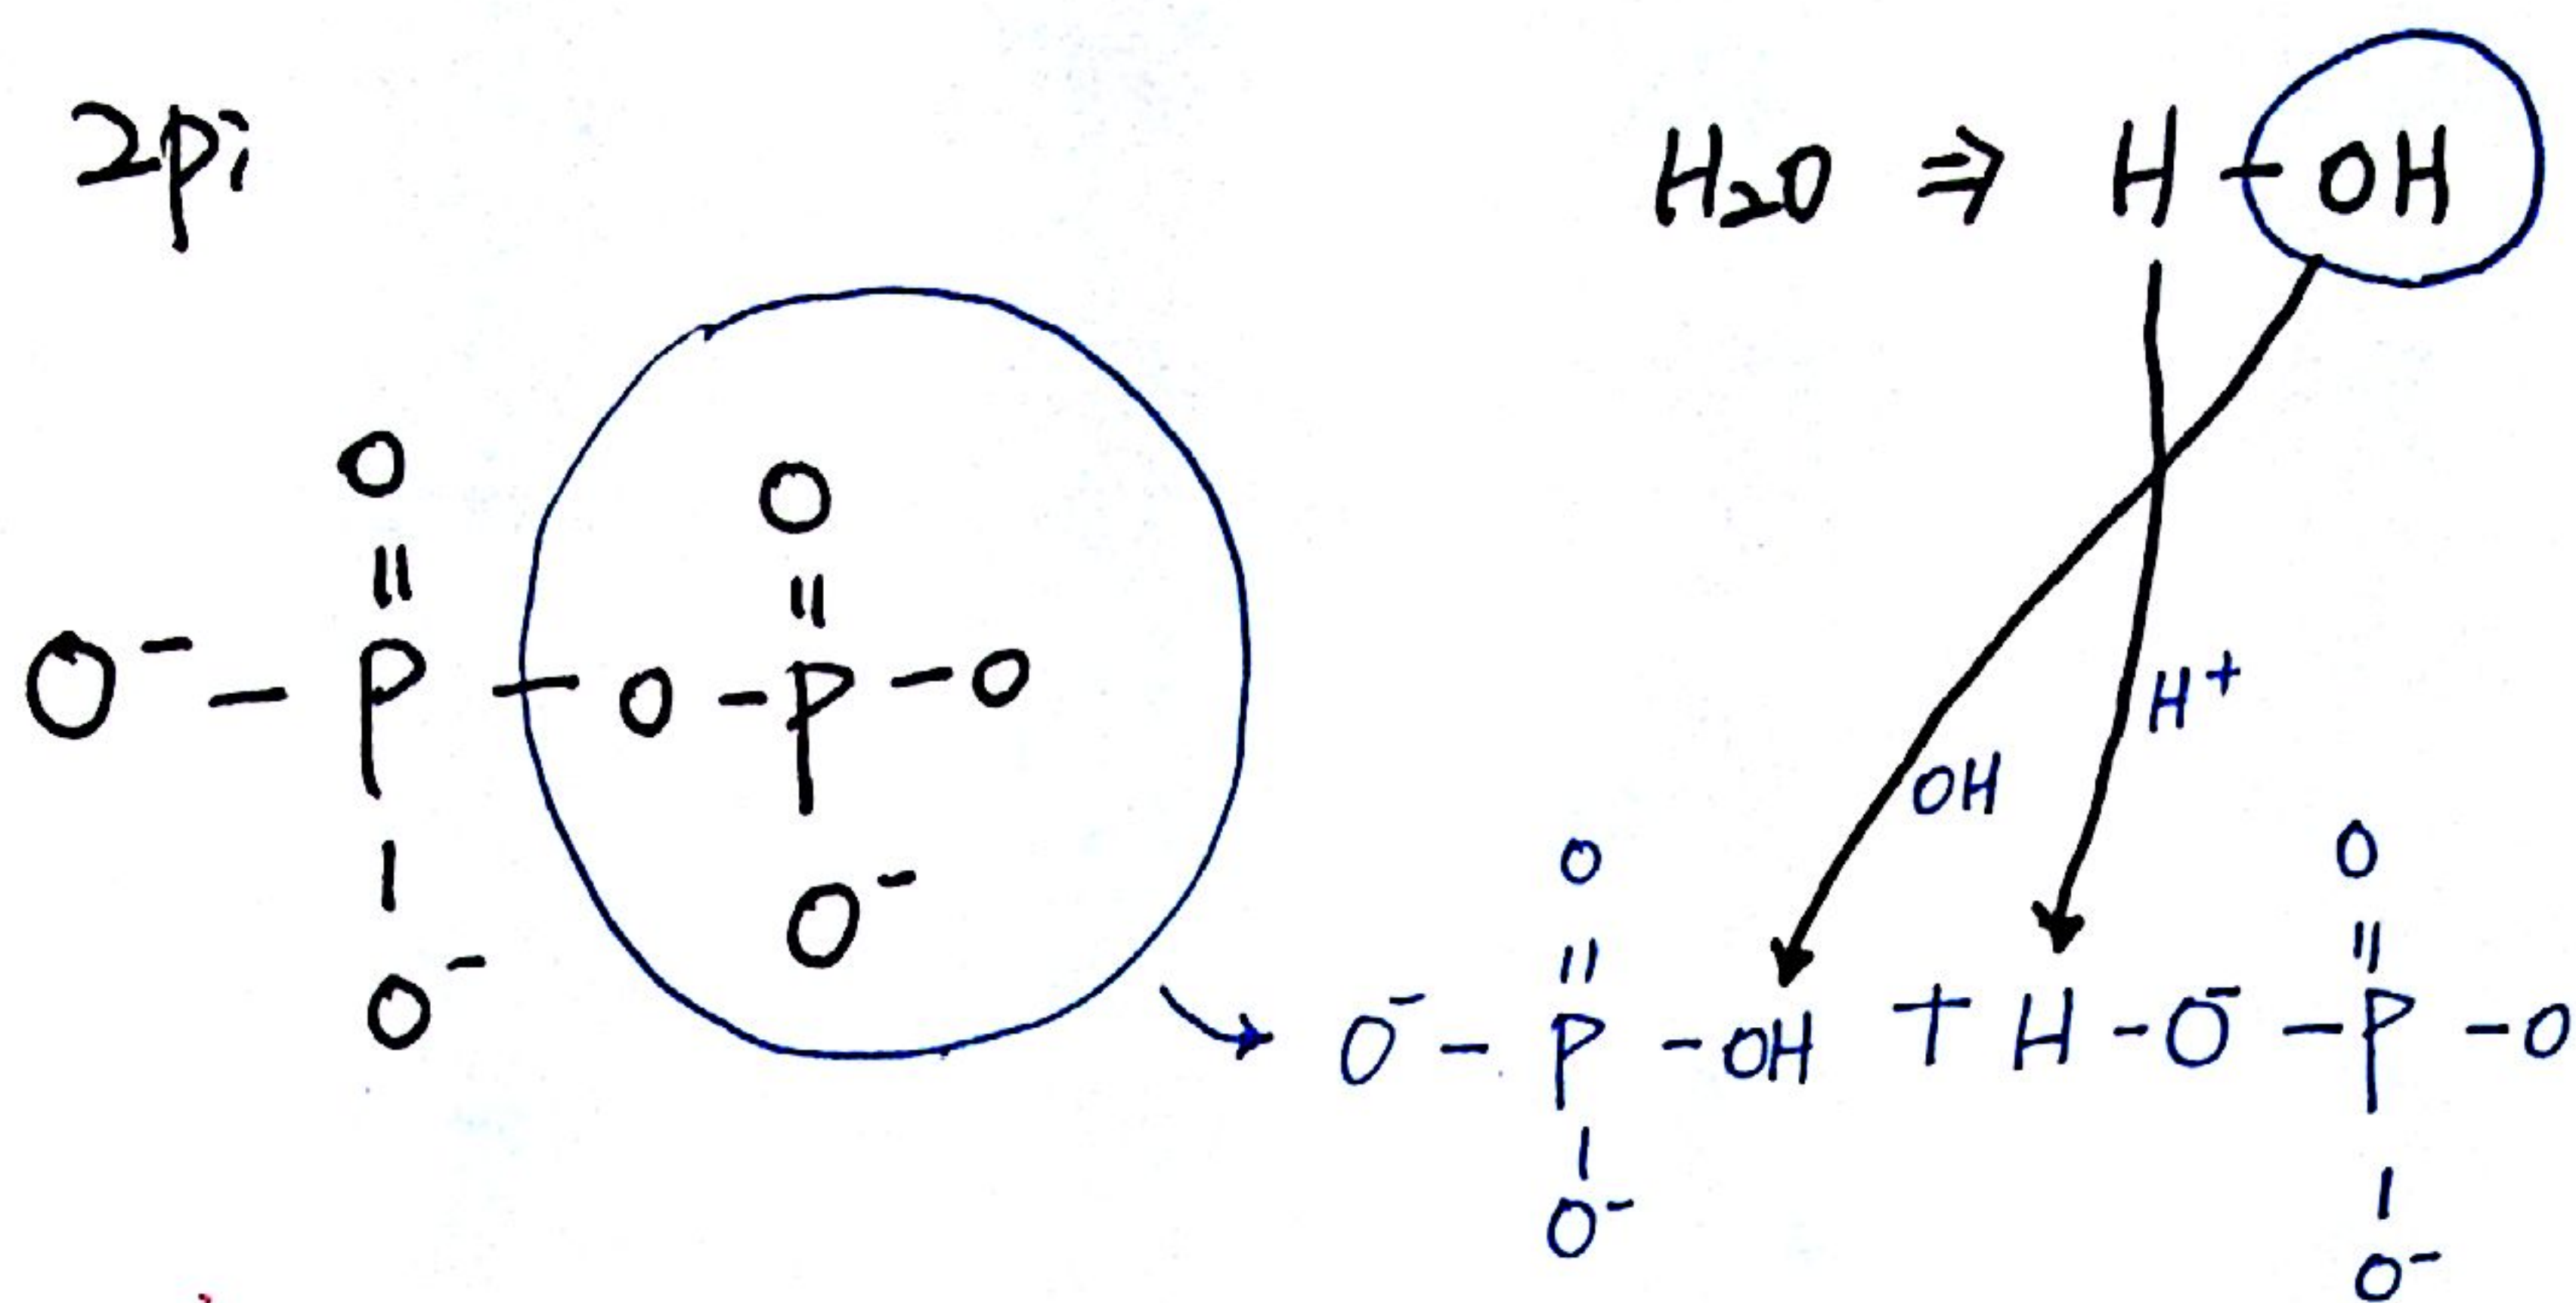 2pi
H₂O ⇒ H - OH
O O
|| ||
O⁻ - P - O - P - O
| O⁻
O⁻
OH H⁺
O O
|| ||
O⁻ - P - OH + H - O⁻ - P - O
| |
O⁻ O⁻